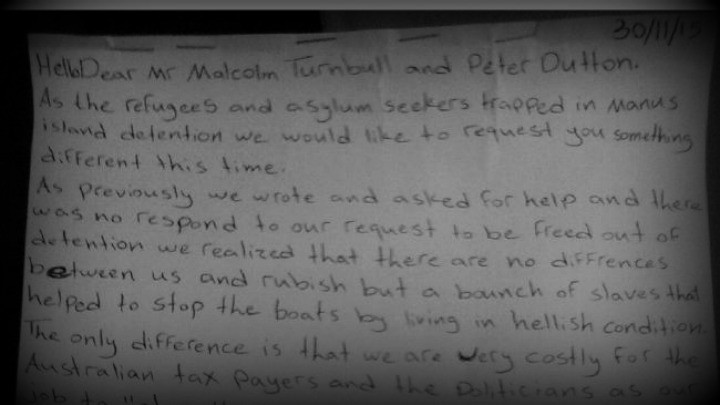 30/11/15
Hello Dear Mr Malcolm Turnbull and Peter Dutton.
As the refugees and asylum seekers trapped in Manus
island detention we would like to request you something
different this time.
As previously we wrote and asked for help and there
was no respond to our request to be freed out of
detention we realized that there are no diffrences
between us and rubish but a bounch of slaves that
helped to stop the boats by living in hellish condition.
The only difference is that we are very costly for the
Australian tax payers and the Politicians as our
job to